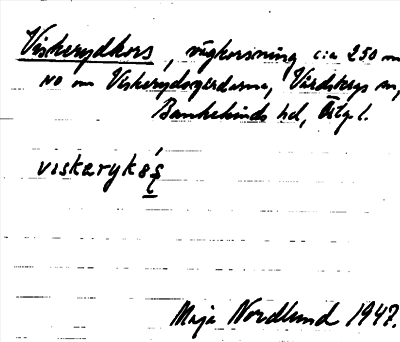 Viskerydkors, vägkorsning c:a 250 m
NO om Viskerydsgårdarna, Vårdsbergs sn,
Bankekinds hd, Östgl.
viskarykó̱s
Maja Nordlund 1947.